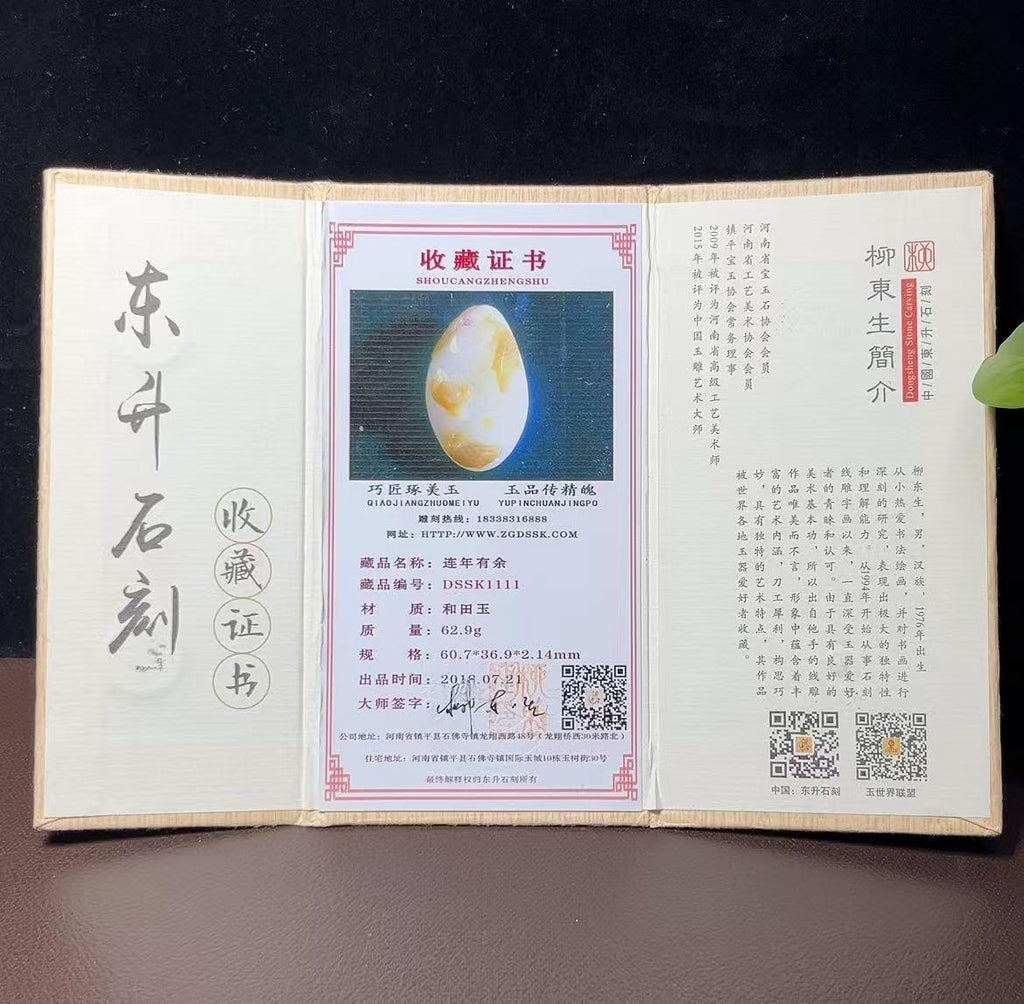 东升石刻
收藏证书
收藏证书
SHOUCANGZHENGSHU
巧匠琢美玉 玉品传精魄
QIAOJIANGZHUOMEIYU YUPINCHUANJINGPO
雕刻热线：18338316888
网址：HTTP://WWW.ZGDSSK.COM
藏品名称：连年有余
藏品编号：DSSK1111
材 质：和田玉
质 量：62.9g
规 格：60.7*36.9*2.14mm
出品时间：2018.07.21
大师签字：柳东生
公司地址：河南省镇平县石佛寺镇龙翔西路48号（龙翔桥西30米路北）
住宅地址：河南省镇平县石佛寺镇国际玉城10栋玉树街30号
最终解释权归东升石刻所有
中/國/東/升/石/刻
Dongsheng Stone Carving
柳東生簡介
河南省宝玉石协会会员
河南省工艺美术协会会员
镇平宝玉协会常务理事
2009年被评为河南省高级工艺美术师
2015年被评为中国玉雕艺术大师
柳东生，男，汉族，1976年出生
从小热爱书法绘画，并对书画进行
深刻的研究，表现出极大的独特性
和理解能力。从1994年开始从事石刻
线雕字画以来，一直深受玉器爱好
者的青睐和认可。由于具有良好的
美术基本功，所以出自他手的线雕
作品唯美而不言，形象中蕴含着丰
富的艺术内涵，刀工犀利，构思巧
妙，具有独特的艺术特点，其作品
被世界各地玉器爱好者收藏。
中国：东升石刻
玉世界联盟